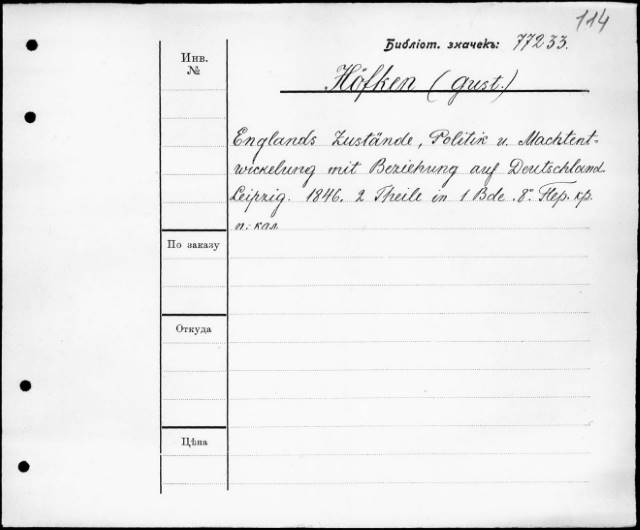 114
Библіот. значекъ: 77233.
Инв.
№
Höfken (Gust.)
Englands Zustände, Politik u. Machtent=
wickelung mit Beziehung auf Deutschland.
Leipzig. 1846. 2 Theile in 1 Bde. 8°. Пер. кр.
п. кал.
По заказу
Откуда
Цѣна